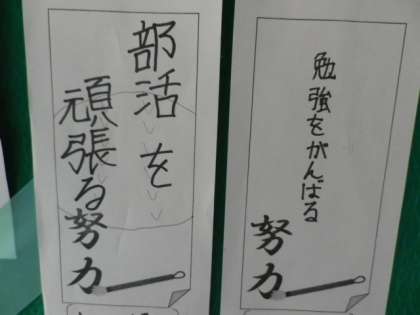 部活を
頑張る努力
勉強をがんばる
努力